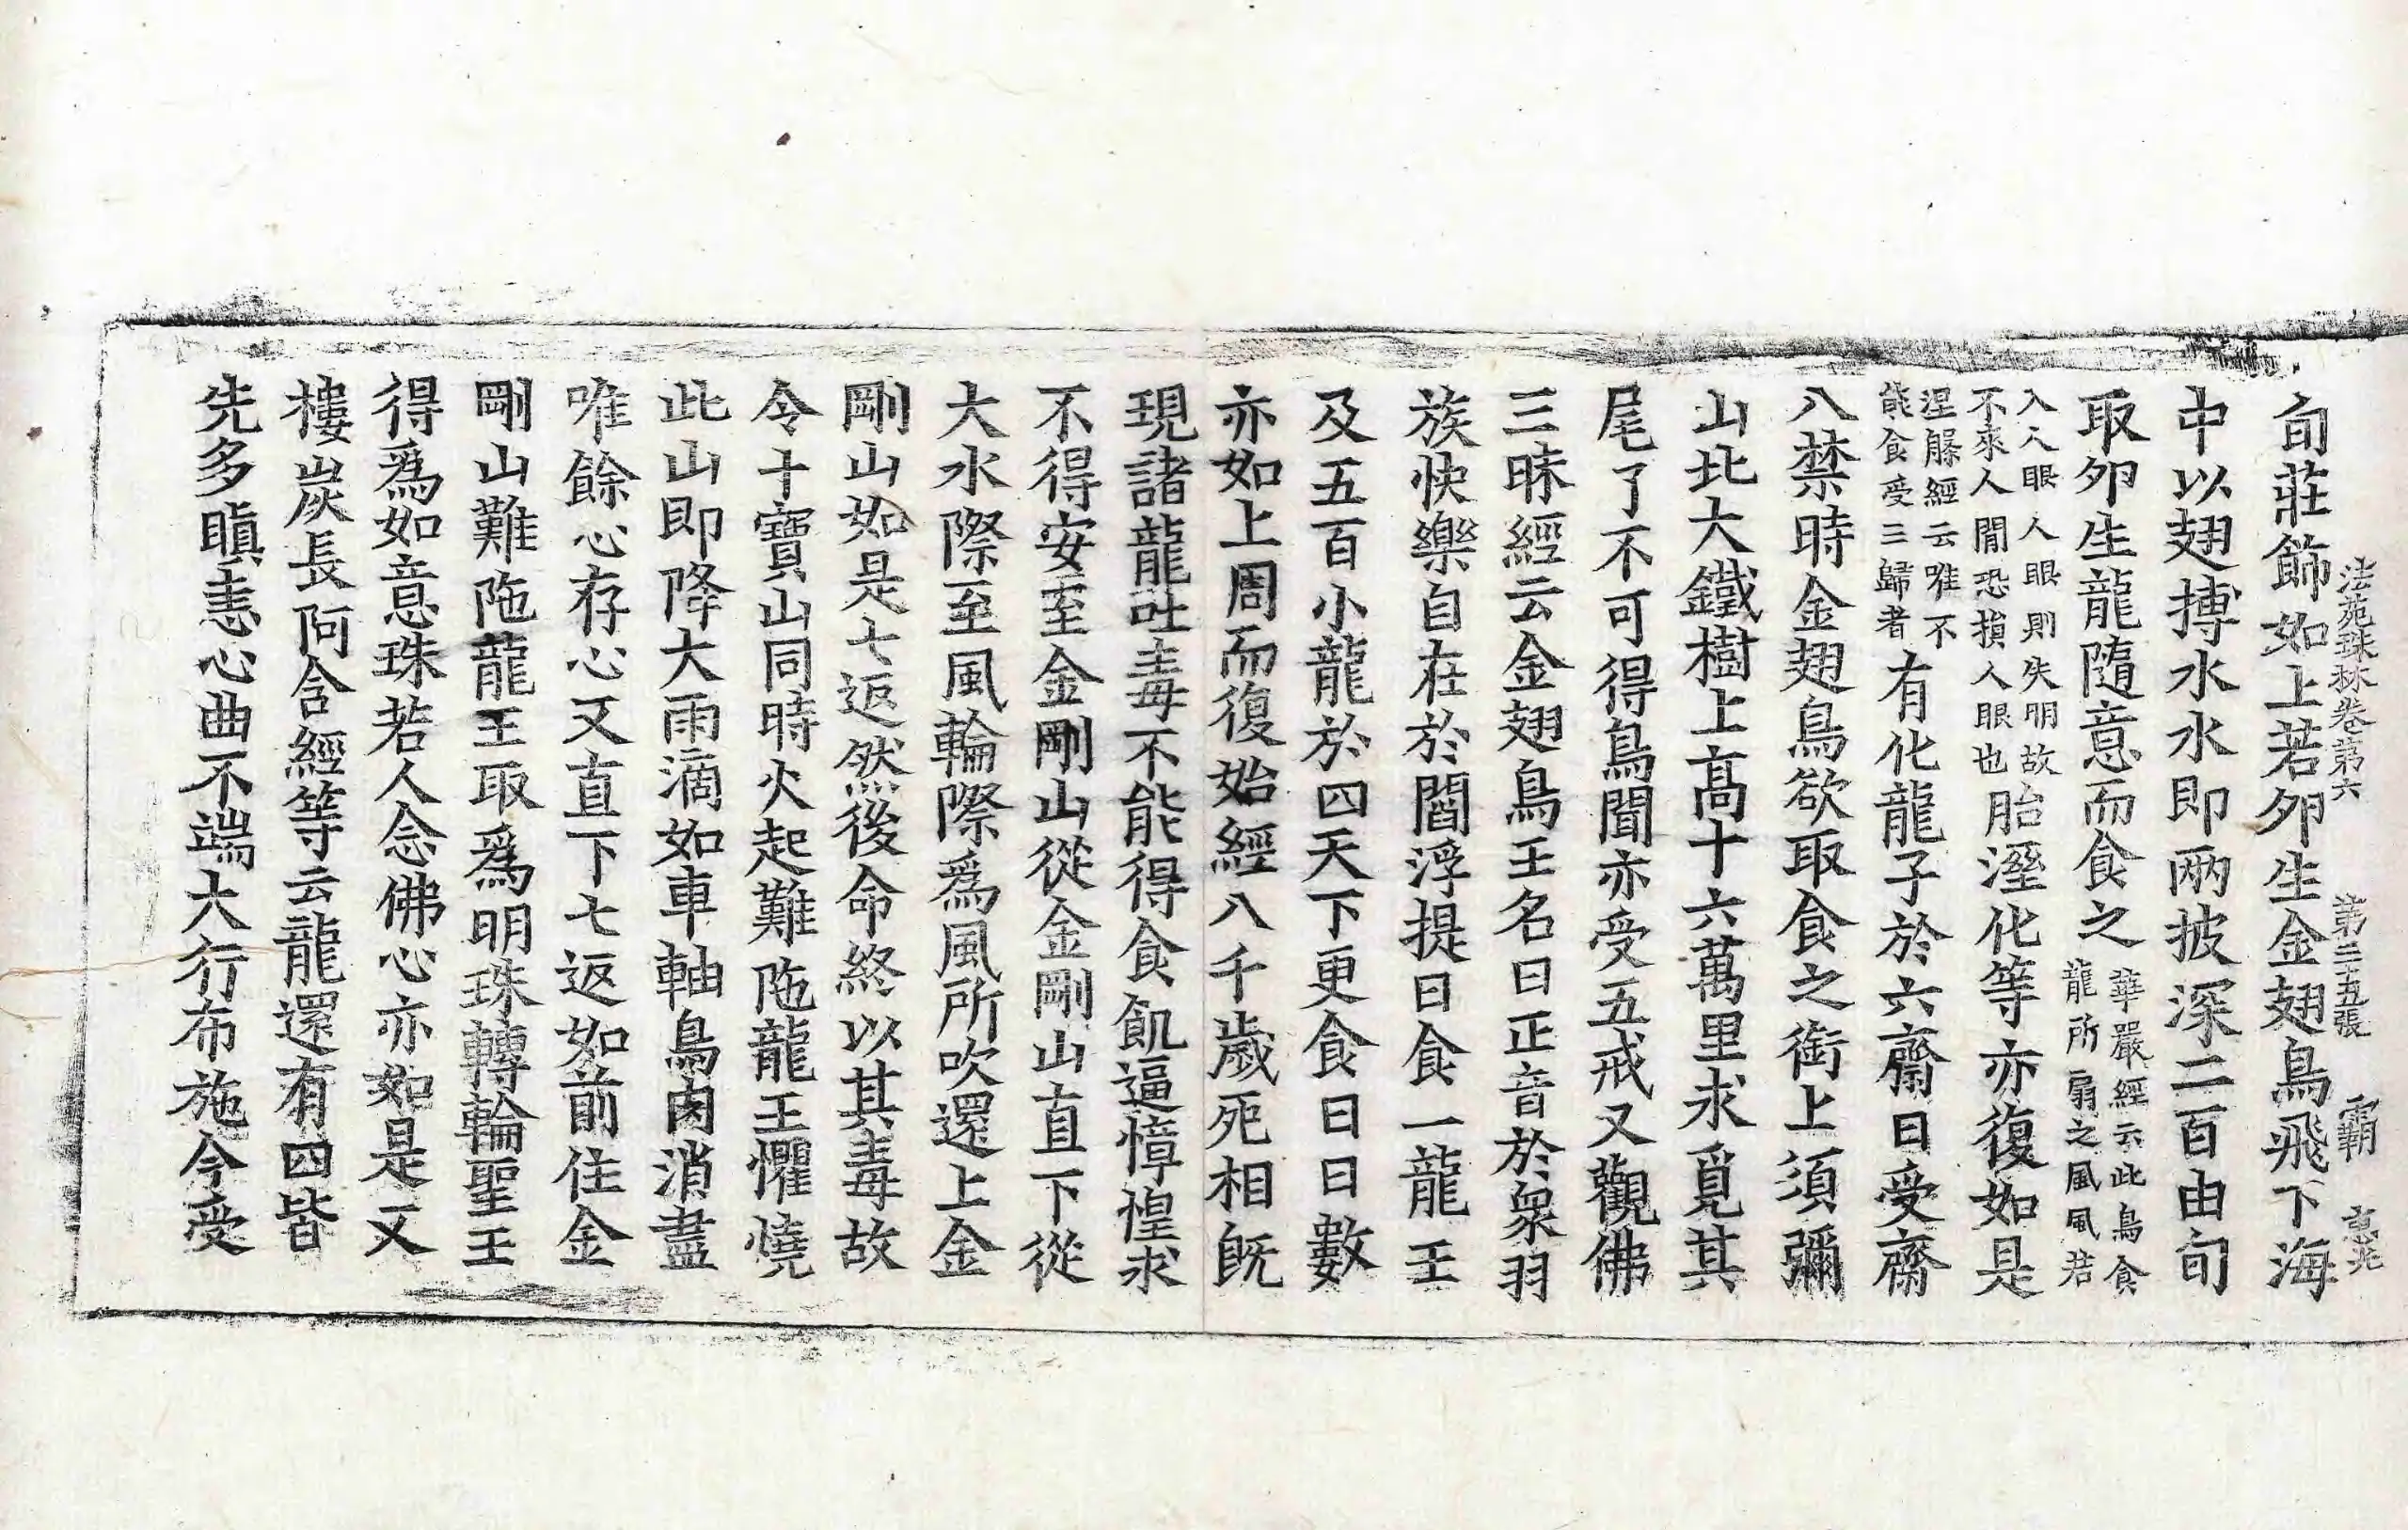 法苑珠林卷第六 第二十五張 霸 惠兆
旬莊飾如上若夘生金翅鳥飛下海
中以翅搏水水即兩披深二百由旬
取夘生龍隨意而食之華嚴經云此鳥食龍所扇之風風若
入人眼人眼則失明故不來人間恐損人眼也胎溼化等亦復如是
涅縢經云唯不能食受三歸者有化龍子於六齋日受齋
八禁時金翅鳥欲取食之銜上須彌
山北大鐵樹上高十六萬里求覓其
尾了不可得鳥聞亦受五戒又觀佛
三昧經云金翅鳥王名曰正音於衆羽
族快樂自在於閻浮提日食一龍王
及五百小龍於四天下更食日日數
亦如上周而復始經八千歲死相旣
現諸龍吐毒不能得食飢逼慞惶求
不得安至金剛山從金剛山直下從
大水際至風輪際爲風所吹還上金
剛山如是七返然後命終以其毒故
令十寶山同時火起難陁龍王懼燒
此山即降大雨滴如車軸鳥肉消盡
唯餘心存心又直下七返如前住金
剛山難陁龍王取爲明珠轉輪聖王
得爲如意珠若人念佛心亦如是又
樓炭長阿含經等云龍還有四皆
先多瞋恚心曲不端大行布施今受